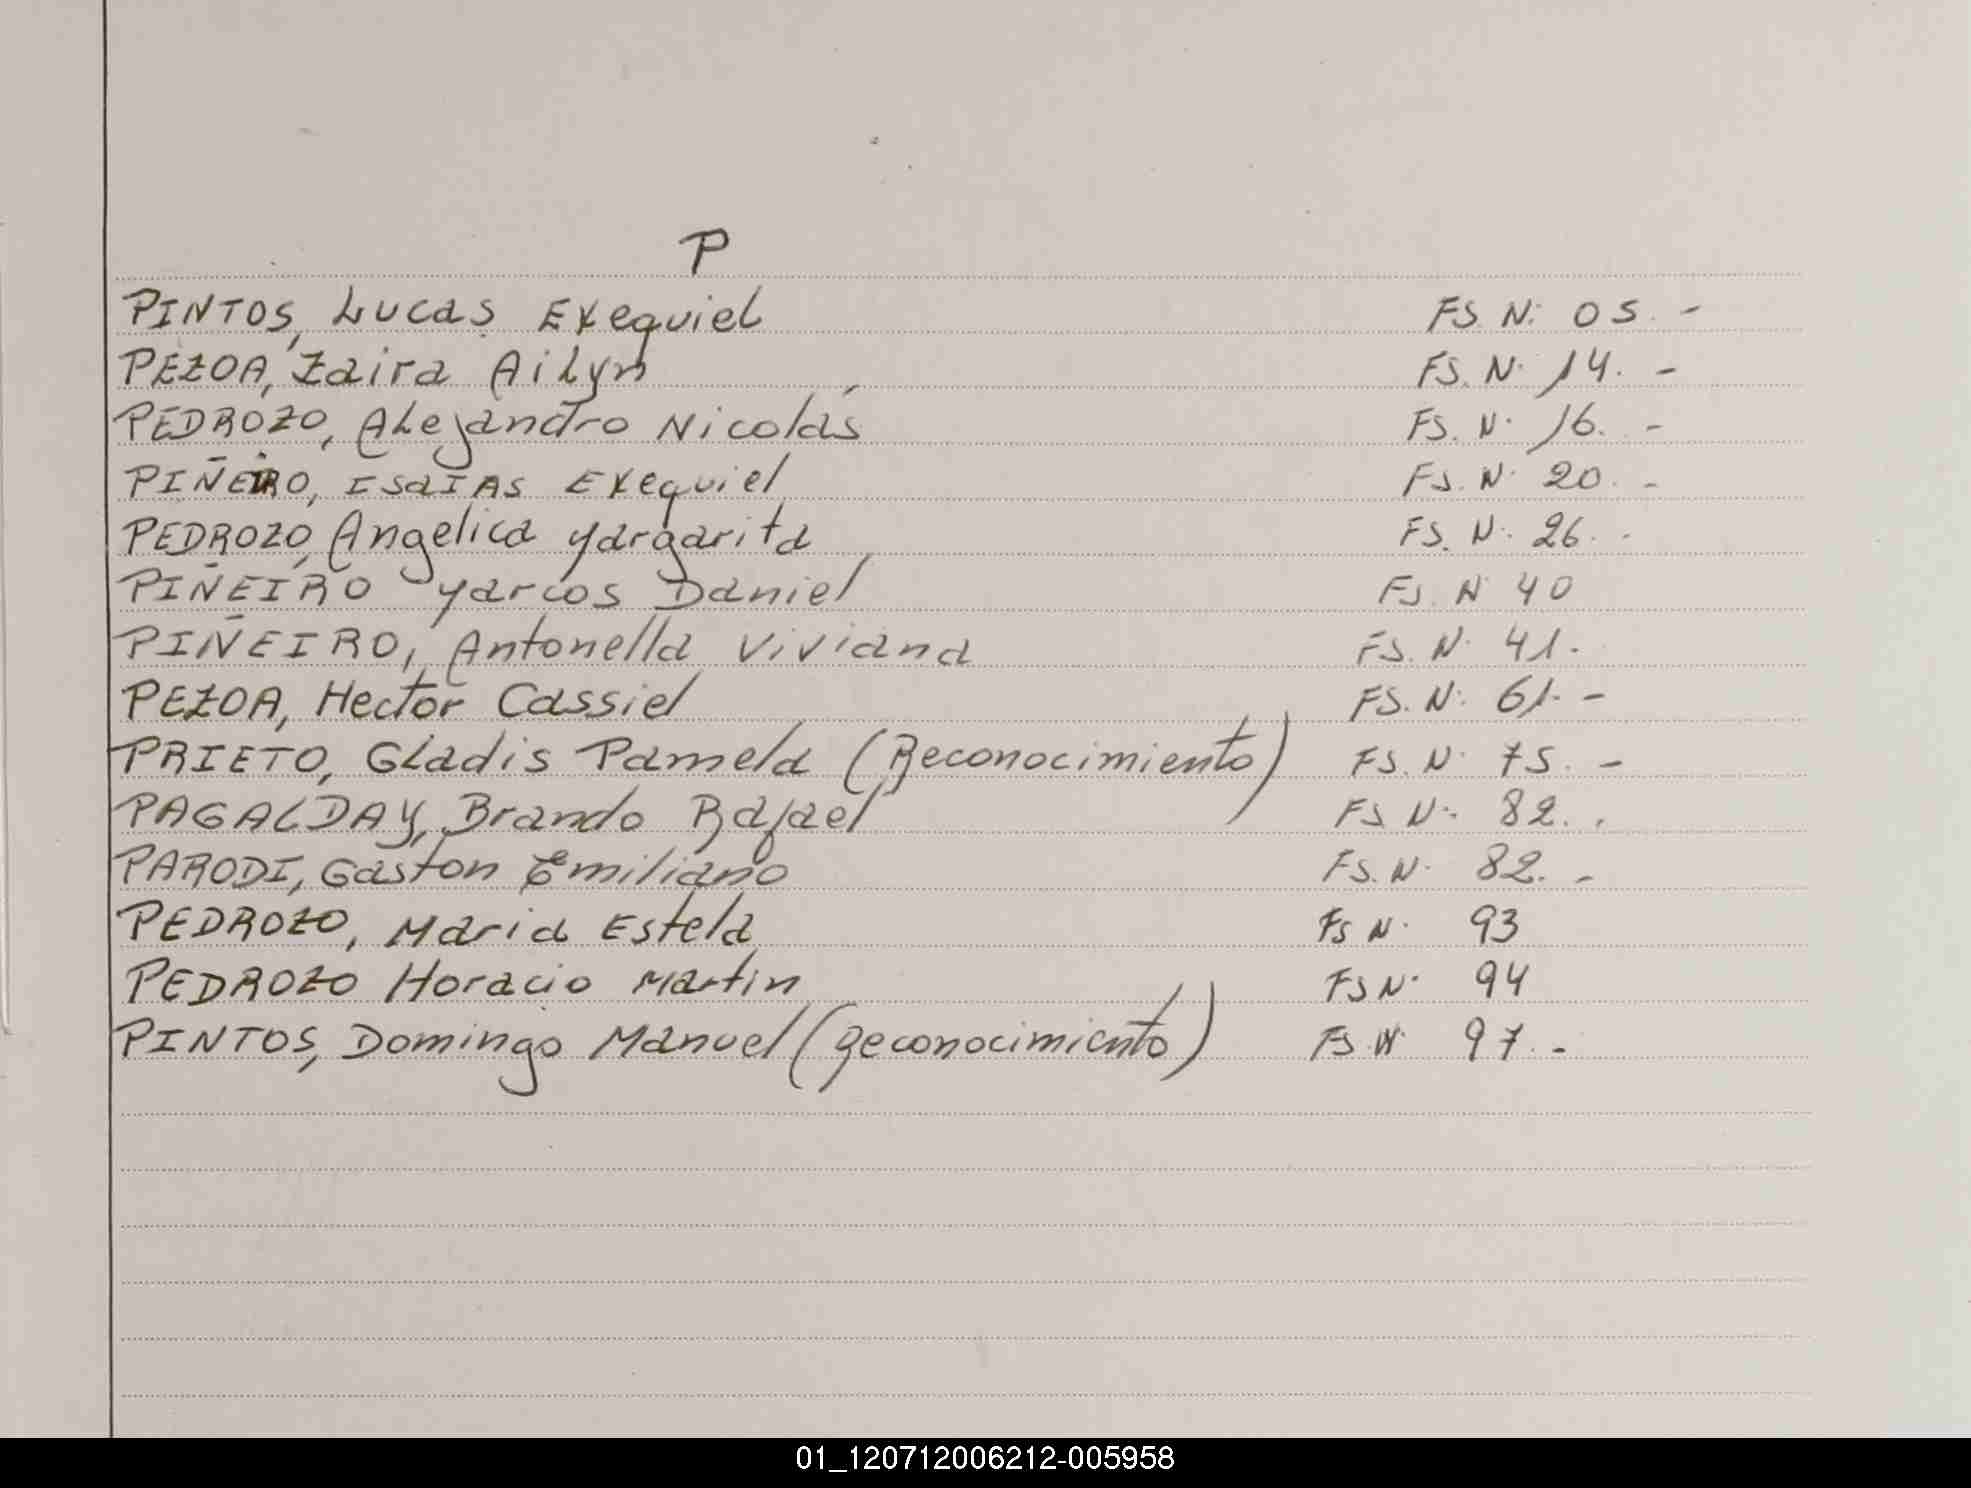 P
PINTOS, Lucas Exequiel FS. N: 05. -
PEZOA, Zaira Ailyn FS. N. 14. -
PEDROZO, Alejandro Nicolás FS. N. 16. -
PIÑEIRO, ISaIAS Exequiel FS. N. 20. -
PEDROZO, Angelica Margarita FS. N. 26. -
PIÑEIRO Marcos Daniel FS. N 40
PIÑEIRO, Antonella Viviana FS. N. 41.
PEZOA, Hector Cassiel FS. N. 61. -
PRIETO, Gladis Pamela (Reconocimiento) FS. N. 75. -
PAGALDAY, Brando Rafael FS N. 82. .
PARODI, Gaston Emiliano FS. N. 82. -
PEDROZO, Maria Estela FS N. 93
PEDROZO Horacio Martin FS N. 94
PINTOS, Domingo Manuel (Reconocimiento) FS N. 97. -
01_120712006212-005958